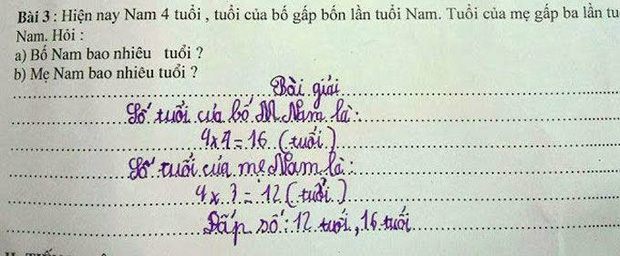 Bài 3 : Hiện nay Nam 4 tuổi , tuổi của bố gấp bốn lần tuổi Nam. Tuổi của mẹ gấp ba lần tu
Nam. Hỏi :
a) Bố Nam bao nhiêu tuổi ?
b) Mẹ Nam bao nhiêu tuổi ?
Bài giải
Số tuổi của bố Nam là:
4 x 4 = 16 (tuổi)
Số tuổi của mẹ Nam là:
4 x 3 = 12 (tuổi)
Đấp số: 12 tuổi, 16 tuổi